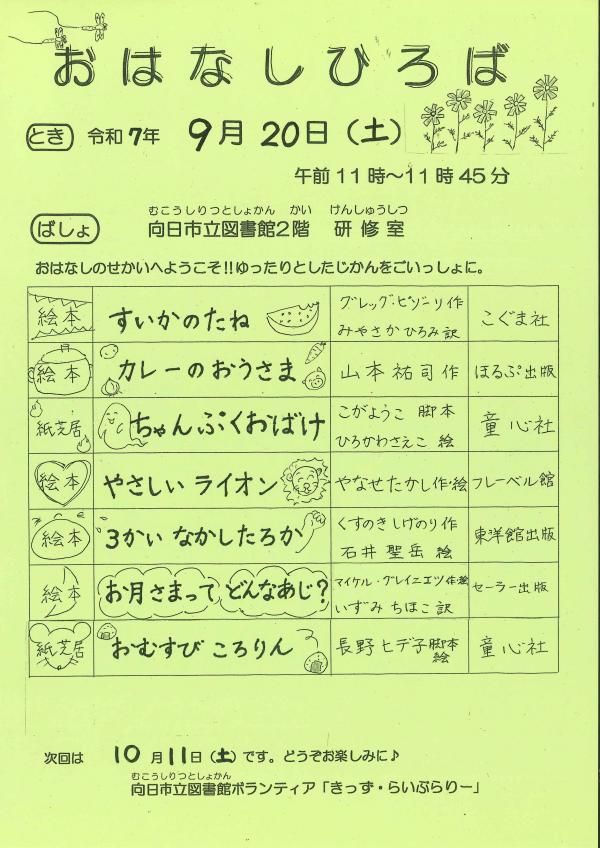 おはなしひろば
とき 令和7年 9月20日(土)
午前11時～11時45分
むこうしりつとしょかん かい けんしゅうしつ
ばしょ 向日市立図書館2階 研修室
おはなしのせかいへようこそ!!ゆったりとしたじかんをごいっしょに。
絵本 すいかのたね グレッグ・ピゾーリ作 みやさかひろみ訳 こぐま社
絵本 カレーのおうさま 山本祐司作 ほるぷ出版
紙芝居 ちゃんぷくおばけ こがようこ 脚本 ひろかわさえこ 絵 童心社
絵本 やさしいライオン やなせたかし作・絵 フレーベル館
絵本 3かいなかしたろか くすのきしげのり作 石井聖岳 絵 東洋館出版
絵本 お月さまってどんなあじ? マイケル・グレイニエツ作・絵 いずみちほこ訳 セーラー出版
紙芝居 おむすびころりん 長野ヒデ子脚本 絵 童心社
次回は 10月11日(土)です。どうぞお楽しみに♪
むこうしりつとしょかん
向日市立図書館ボランティア「きっず・らいぶらりー」